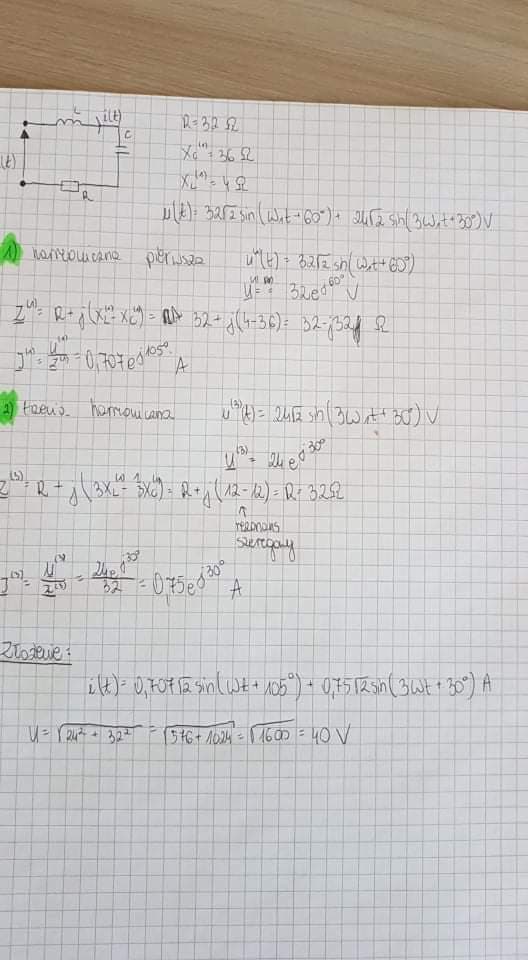 L i(t)
C
(t)
R
R = 32 Ω
X_C^(1) = 36 Ω
X_L^(1) = 4 Ω
u(t) = 32√2 sin(ω₁t + 60°) + 24√2 sin(3ω₁t + 30°) V
1) harmoniczna pierwsza u^(1)(t) = 32√2 sin(ω₁t + 60°)
U^(1) = 32e^j60° V
Z^(1) = R + j(X_L^(1) - X_C^(1)) = 32 + j(4-36) = 32 - j32 Ω
I^(1) = U^(1)/Z^(1) = 0,707e^j105° A
2) trzecia harmoniczna u^(3)(t) = 24√2 sin(3ω₁t + 30°) V
U^(3) = 24e^j30°
Z^(3) = R + j(3X_L^(1) - 1/3 X_C^(1)) = R + j(12-12) = R = 32Ω
↑
rezonans
szeregowy
I^(3) = U^(3)/Z^(3) = 24e^j30°/32 = 0,75e^j30° A
Złożenie:
i(t) = 0,707√2 sin(ωt + 105°) + 0,75√2 sin(3ωt + 30°) A
U = √(24² + 32²) = √(576 + 1024) = √1600 = 40 V